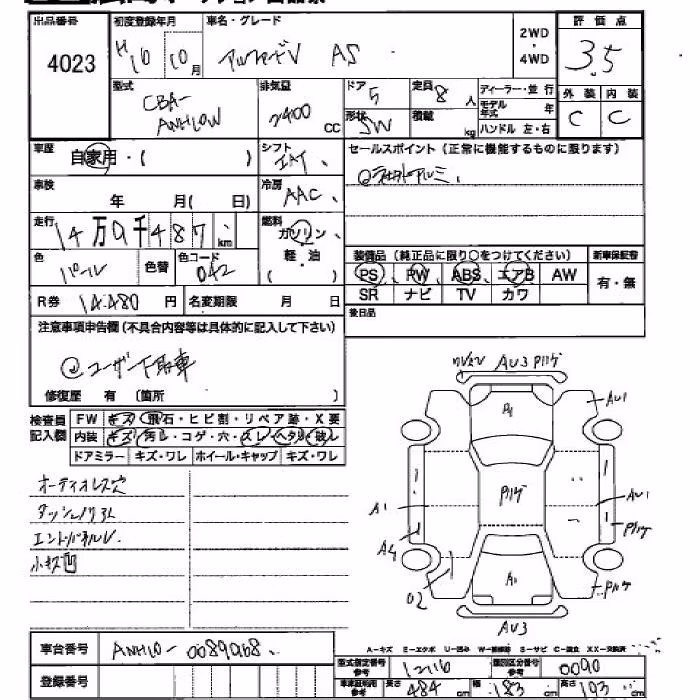 出品番号 初度登録年月 車名・グレード 2WD・4WD 評価点
4023 H16 10月 アルファードV AS 3.5
型式 CBA-ANH10W 排気量 2400 CC ドア 5 定員 8人 ディーラー・並行 外装 内装
形状 SW 積載 kg モデル年式 年 C C
ハンドル 左・右
車歴 自家用・( ) シフト IAT、 セールスポイント(正常に機能するものに限ります)
車検 年 月( 日) 冷房 AAC、
走行 14万9千487 km 燃料 ガソリン、軽・油 ( )
色 パール 色替 色コード 042
装備品(純正品に限り○をつけてください) 新車保証書
PS、PW、ABS、エアB AW 有・無
SR ナビ TV カワ
R券 14,480円 名変期限 月 日 後日品
注意事項申告欄(不具合内容等は具体的に記入して下さい)
ユーザー下取車
修復歴 有(箇所 )
検査員記入欄 FW キズ・飛石・ヒビ割・リペア跡・X要
内装 キズ・汚レ・コゲ・穴・スレ・ヘタリ・破レ
ドアミラー キズ・ワレ ホイール・キャップ キズ・ワレ
オーディオレス穴
小キズ凹
AU3 Pハゲ
AU1
A1
Pハゲ
A1 AU1
A4 Pハゲ
U2 A1 Pハゲ
AU3
A-キズ E-エクボ U-凹み W-補修跡 S-サビ C-腐食 XX-交換済
車台番号 ANH10-0089968、
型式指定番号 参考 12116 類別区分番号 参考 0090
登録番号
車体証明用 参考 長さ 484 cm 幅 183 cm 高さ 193 cm